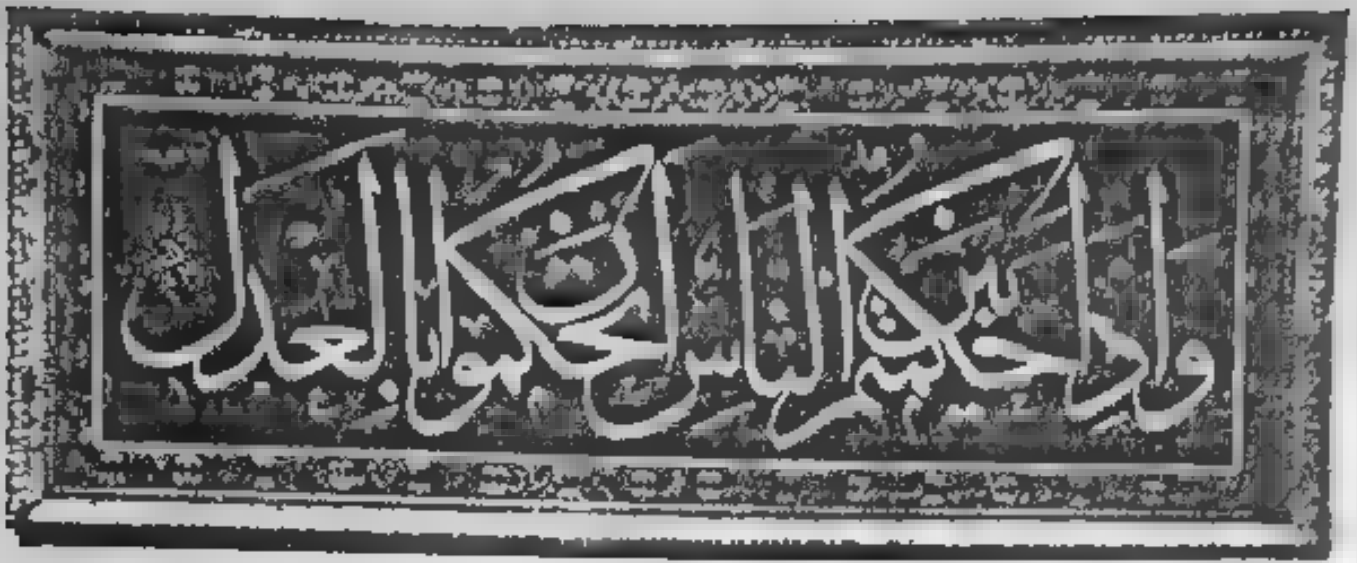 واذا حكمتم بين الناس ان تحكموا بالعدل